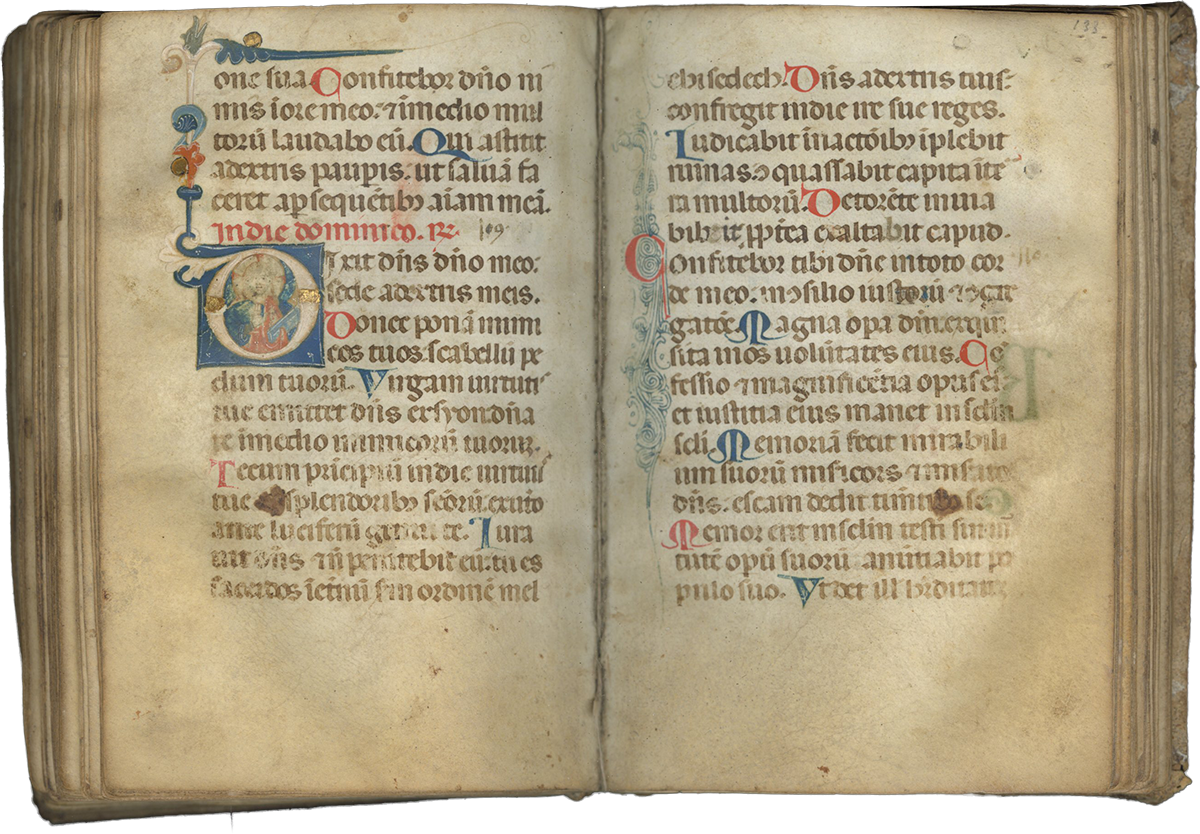 one sua. Confitebor dño ni
mis ĩ ore meo. ⁊ ĩ medio mul
torũ laudabo eũ. Qui astitit
a dextris paup̃is. ut saluã fa
ceret a p̱sequẽtibȝ aĩam meã.
In die dominico. 
109
Dixit dñs dño meo:
sede a dextris meis.
Donec ponã inimi
cos tuos: scabellũ pe
dum tuorũ. Virgam uirtutis
tue emittet dñs ex syon: dña
re ĩ medio inimicorũ tuorum.
Tecum principiũ in die uirtutis
tue splendoribȝ sc̃orũ: ex uto
ante luciferũ genui te. Iura
uit dñs ⁊ ñ penitebit eũ: tu es
sacerdos ĩ etnũ sc̃dm ordinẽ mel
133
chisedech. Dñs a dextris tuis:
confregit in die ire sue reges.
Iudicabit ĩ nactõibȝ ĩplebit
ruinas: quassabit capita ĩ te
ra multorũ. De torẽte in uia
bibet: p̱pt̃ea exaltabit capud.
110
Confitebor tibi dñe in toto cor
de meo: in ꝯsilio iustorũ ⁊ ꝯg̃
gatõe. Magna op̃a dñi: exqui
sita in oẽs uolũtates eius. Cõ
fessio ⁊ magnificẽtia opus eiꝰ:
et iustitia eius manet in sc̃lm
sc̃li. Memoriã fecit mirabili
um suorũ misicors ⁊ miserato
dñs: escam dedit timẽtibȝ se.
Memor erit in sc̃lm testi sui: uir
tutẽ opũ suorũ añtiabit po
pulo suo. Vt det ill' hẽditatẽ